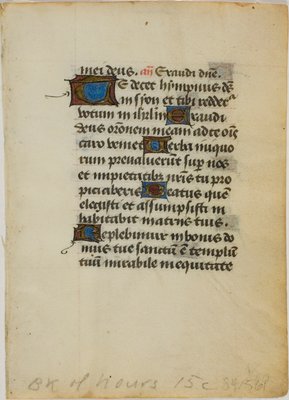 mei deus. añ Exaudi dñe.
TE decet hympnus ds̄
in syon et tibi reddet᷑
votum in ihrlm̄ Exaudi
deus orōnem meam ad te om̄e
caro veniet Verba iniquo
rum preualuerūt sup nos
et impietatib; nr̄is tu pro
piciaberis Beatus quē
elegisti et assumpsisti in
habitabit in atriis tuis
Replebimur in bonis do
mus tue sanctū ē templū
tuū mirabile in equitate
BK of Hours 15c